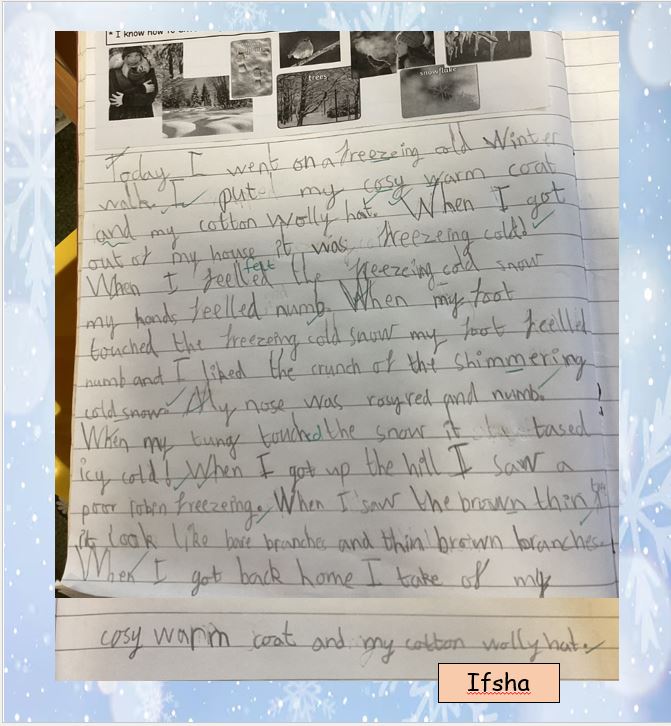 * I know how to
trees
snowflake
Today I went on a freezeing cold Winter
walk. I put my cosy warm coat
and my cotton wolly hat. When I got
out of my house it was freezeing cold!
felt
When I feelled the freezeing cold snow
my hands feelled numb. When my foot
touched the freezeing cold snow my foot feelled
numb and I liked the crunch of the shimmering
cold snow. My nose was rosy red and numb.
When my tung touchd the snow it tased
icy cold! When I got up the hill I saw a
poor robin freezeing. When I saw the brown thin
it look like bare branches and thin brown branches.
When I got back home I take of my
cosy warm coat and my cotton wolly hat.
Ifsha